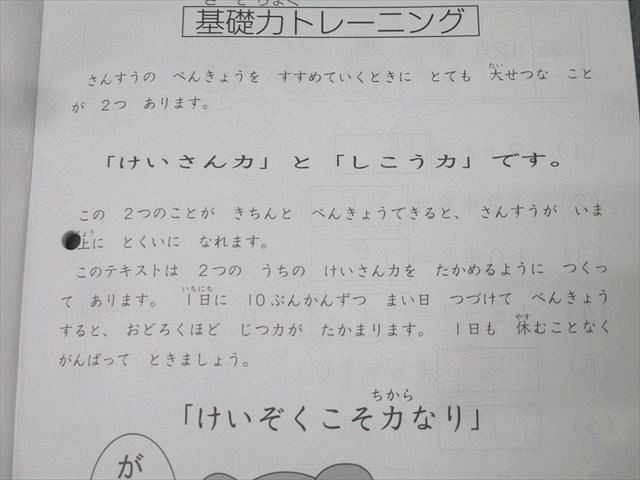 基礎力トレーニング
さんすうの べんきょうを すすめていくときに とても 大せつな こと
が 2つ あります。
「けいさん力」 と 「しこう力」 です。
この 2つのことが きちんと べんきょうできると、 さんすうが いま
上に とくいに なれます。
このテキストは 2つの うちの けいさん力を たかめるように つくっ
て あります。 1日に 10ぷんかんずつ まい日 つづけて べんきょう
すると、おどろくほど じつ力が たかまります。 1日も 休むことなく
がんばって ときましょう。
「けいぞくこそ力なり」
が